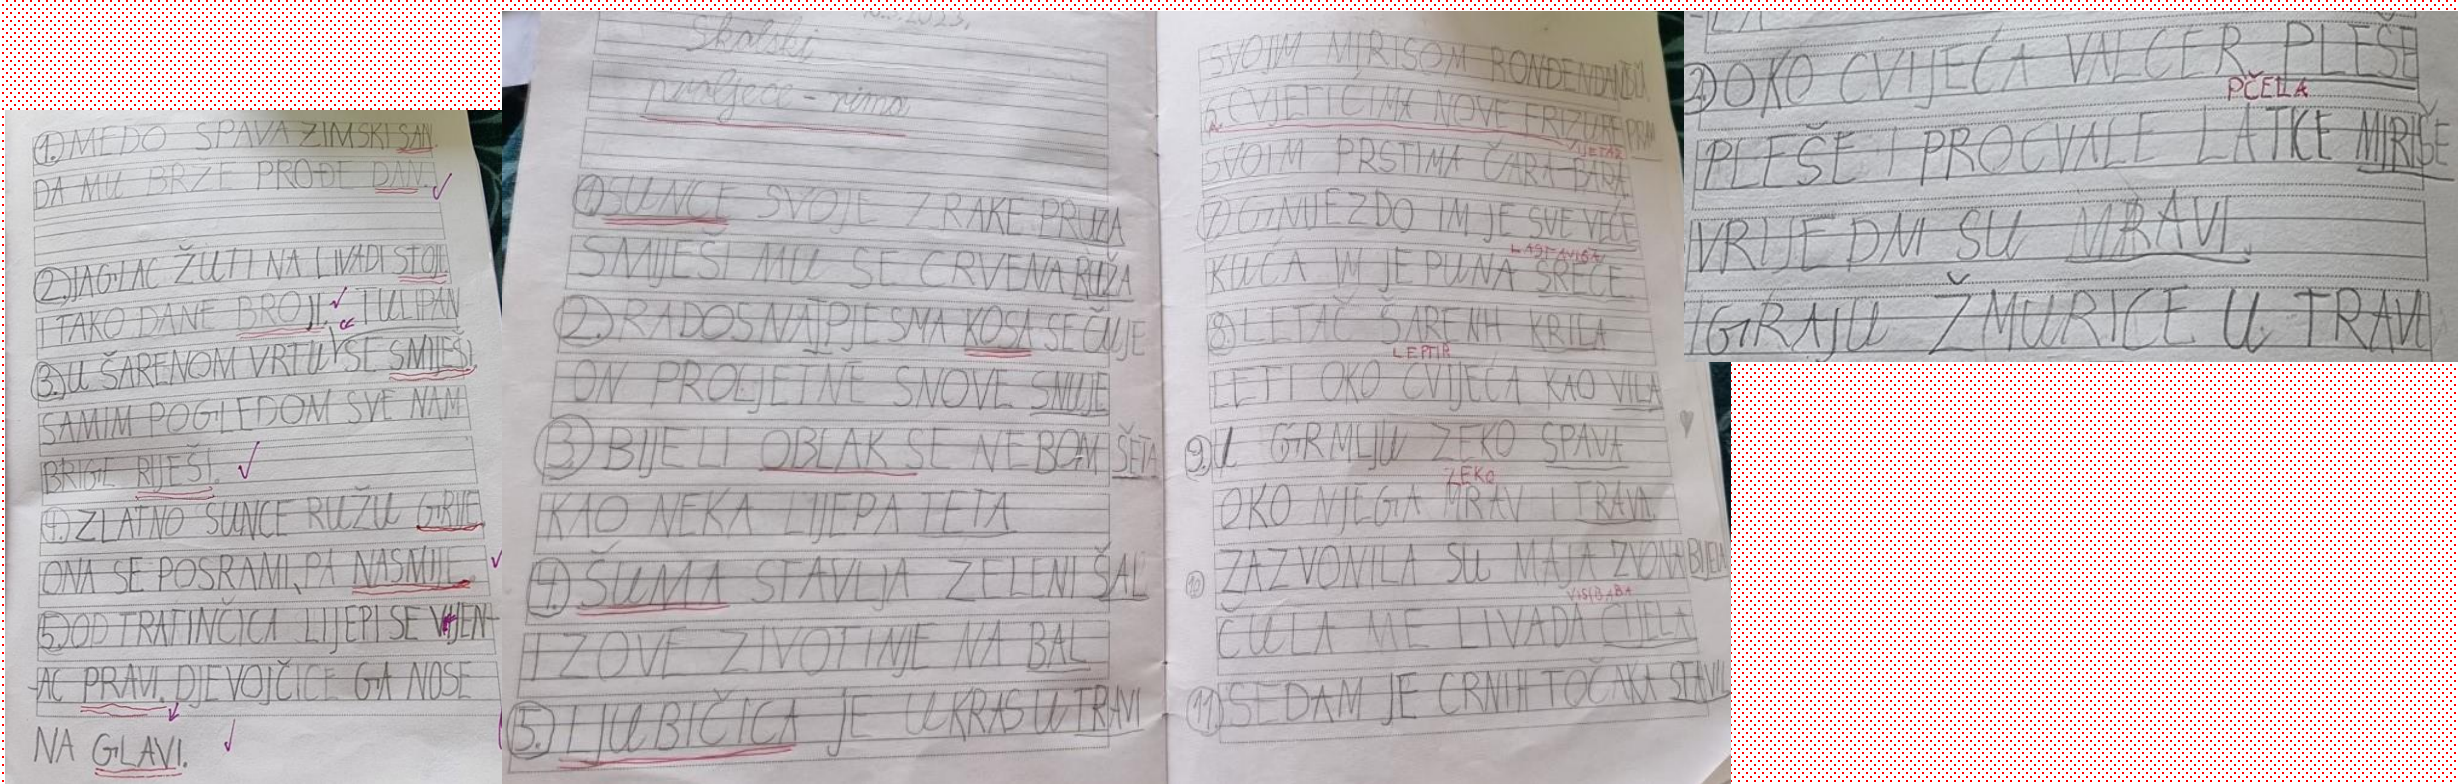 1. MEDO SPAVA ZIMSKI SAN
DA MU BRŽE PROĐE DAN.
2. JAGLAC ŽUTI NA LIVADI STOJI
I TAKO DANE BROJI. TULIPAN
3. U ŠARENOM VRTU SE SMIJEŠI
SAMIM POGLEDOM SVE NAM
BRIGE RIJEŠI.
4. ZLATNO SUNCE RUŽU GRIJE
ONA SE POSRAMI, PA NASMIJE.
5. OD TRATINČICA LIJEPI SE VIJEN-
-AC PRAVI. DJEVOJČICE GA NOSE
NA GLAVI.
Školski
proljeće - rima
1. SUNCE SVOJE ZRAKE PRUŽA
SMIJEŠI MU SE CRVENA RUŽA
2. RADOSNA PJESMA KOSA SE ČUJE
ON PROLJETNE SNOVE SNUJE
3. BIJELI OBLAK SE NEBOM ŠETA
KAO NEKA LIJEPA TETA
4. ŠUMA STAVLJA ZELENI ŠAL
I ZOVE ŽIVOTINJE NA BAL
5. LJUBIČICA JE UKRAS U TRAVI
SVOJIM MIRISOM ROĐENDAN
6. CVJETIĆIMA NOVE FRIZURE
VJETAR
SVOIM PRSTIMA ČARA
7. GNIJEZDO IM JE SVE VEĆE
LASTAVICA
KUĆA IM JE PUNA SREĆE
8. LETAČ ŠARENIH KRILA
LEPTIR
LETI OKO CVIJEĆA KAO VILA
9. U GRMLJU ZEKO SPAVA
ZEKO
OKO NJEGA MRAV I TRAVA
10 ZAZVONILA SU MAJA ZVONA BIJELA
VISIBABA
ČULA ME LIVADA CIJELA
11) SEDAM JE CRNIH TOČAKA STAVILA
2) OKO CVIJEĆA VALCER PLEŠE
PČELA
PLEŠE I PROCVALE LATKE MIRIŠE
VRIJEDNI SU MRAVI.
IGRAJU ŽMURICE U TRAVI